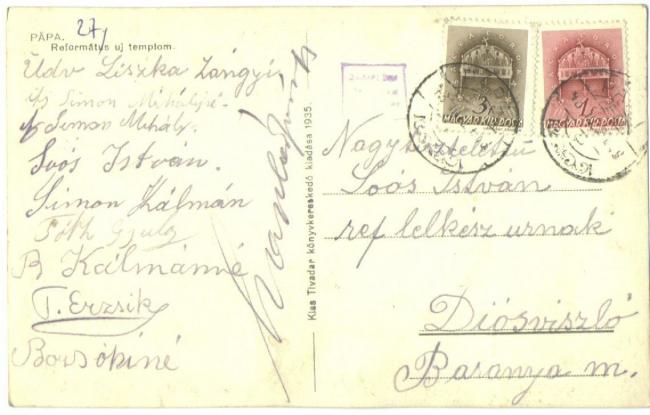 27,
PÁPA.
Református uj templom.
Üdv Liszka Zángyi
ifj Simon Mihályné.
ifj Simon Mihály.
Soós István.
Simon Kálmán
Tóth Gyula
B Kálmánné
T. Erzsik
Borsókiné
Kiss Tivadar könyvkereskedő kiadása 1935.
MAGYAR KIR. POSTA
MAGYAR KIR. POSTA
Nagytiszteletű
Soós István
ref lelkész urnak
Diósviszló
Baranya m.